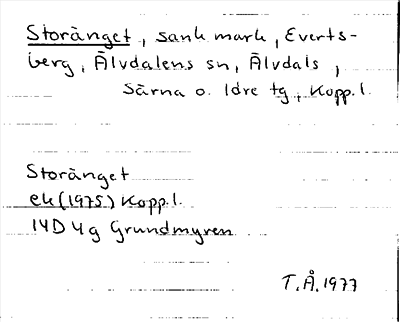 Storänget, sank mark, Everts-
berg, Älvdalens sn, Älvdals,
Särna o. Idre tg, Kopp.l.
Storänget
ek (1975) Kopp.l.
14D 4g Grundmyren
T.Å. 1977